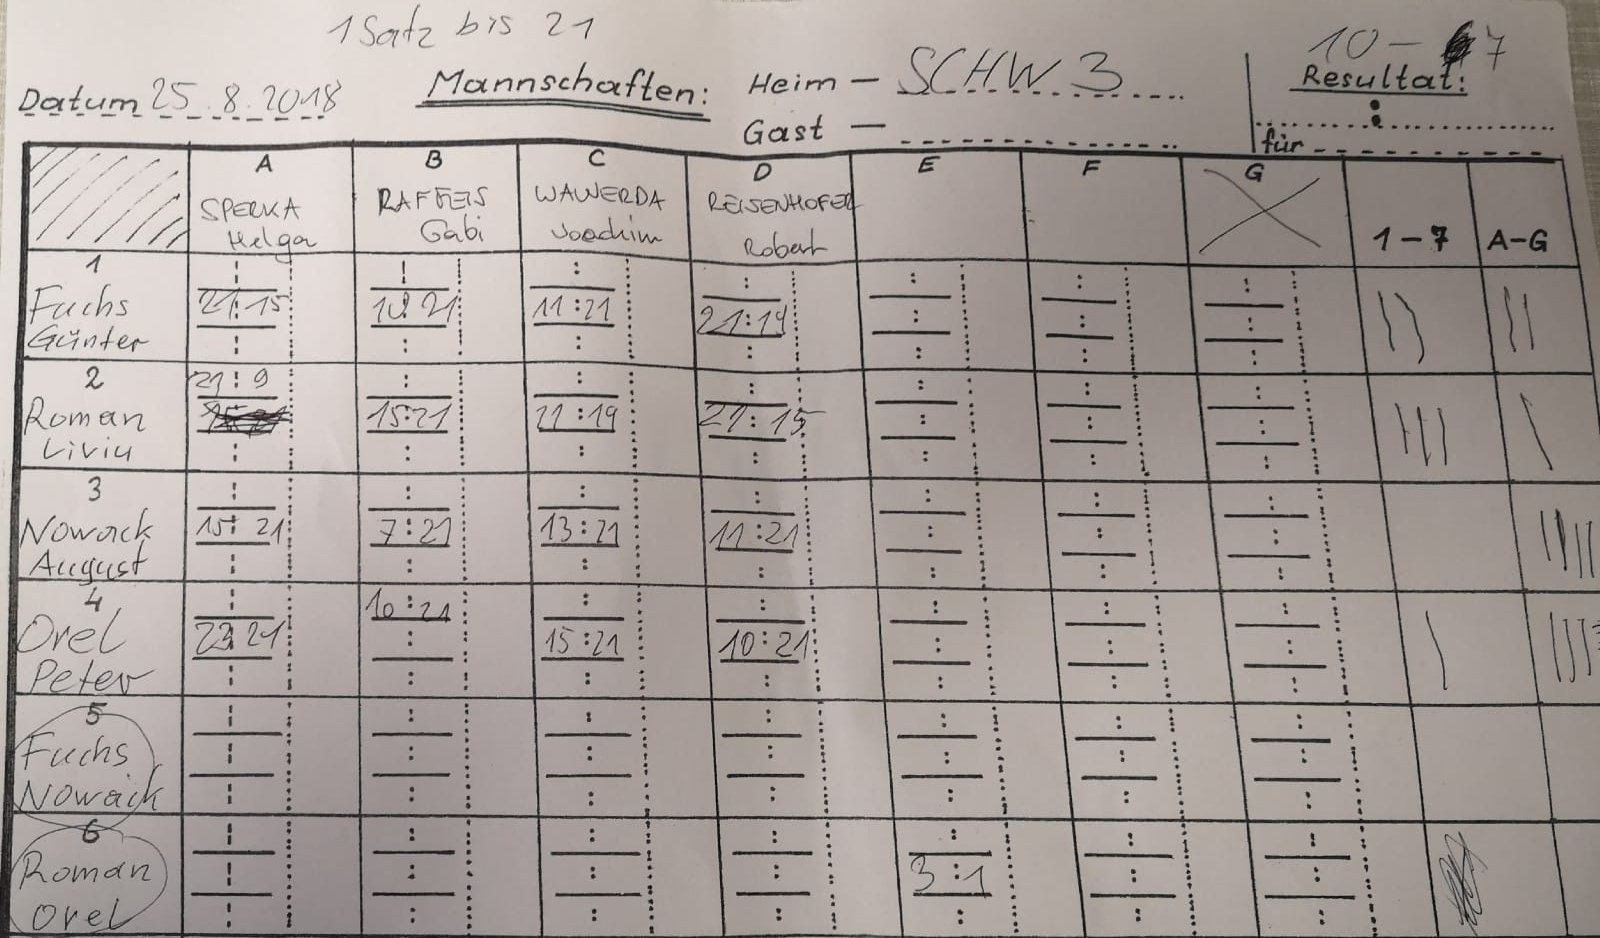 1 Satz bis 21
10 - 7
Datum 25.8.2018 Mannschaften: Heim - SCHW 3 Resultat:
Gast - für
A B C D E F G
SPERKA RAFFEIS WAWERDA REISENHOFER
Helga Gabi Joachim Robert 1-7 A-G
1
Fuchs 21:15 21 11:21 21:19
Günter
2 21:9
Roman 15:21 21:19 21:15
Liviu
3
Nowack 15:21 7:21 13:21 11:21
August
4 10:21
Orel 23:21 15:21 10:21
Peter
5
Fuchs
Nowack
6
Roman 3:1
Orel